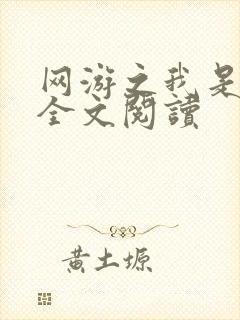 网游之我是
全文閱讀
黄土塬